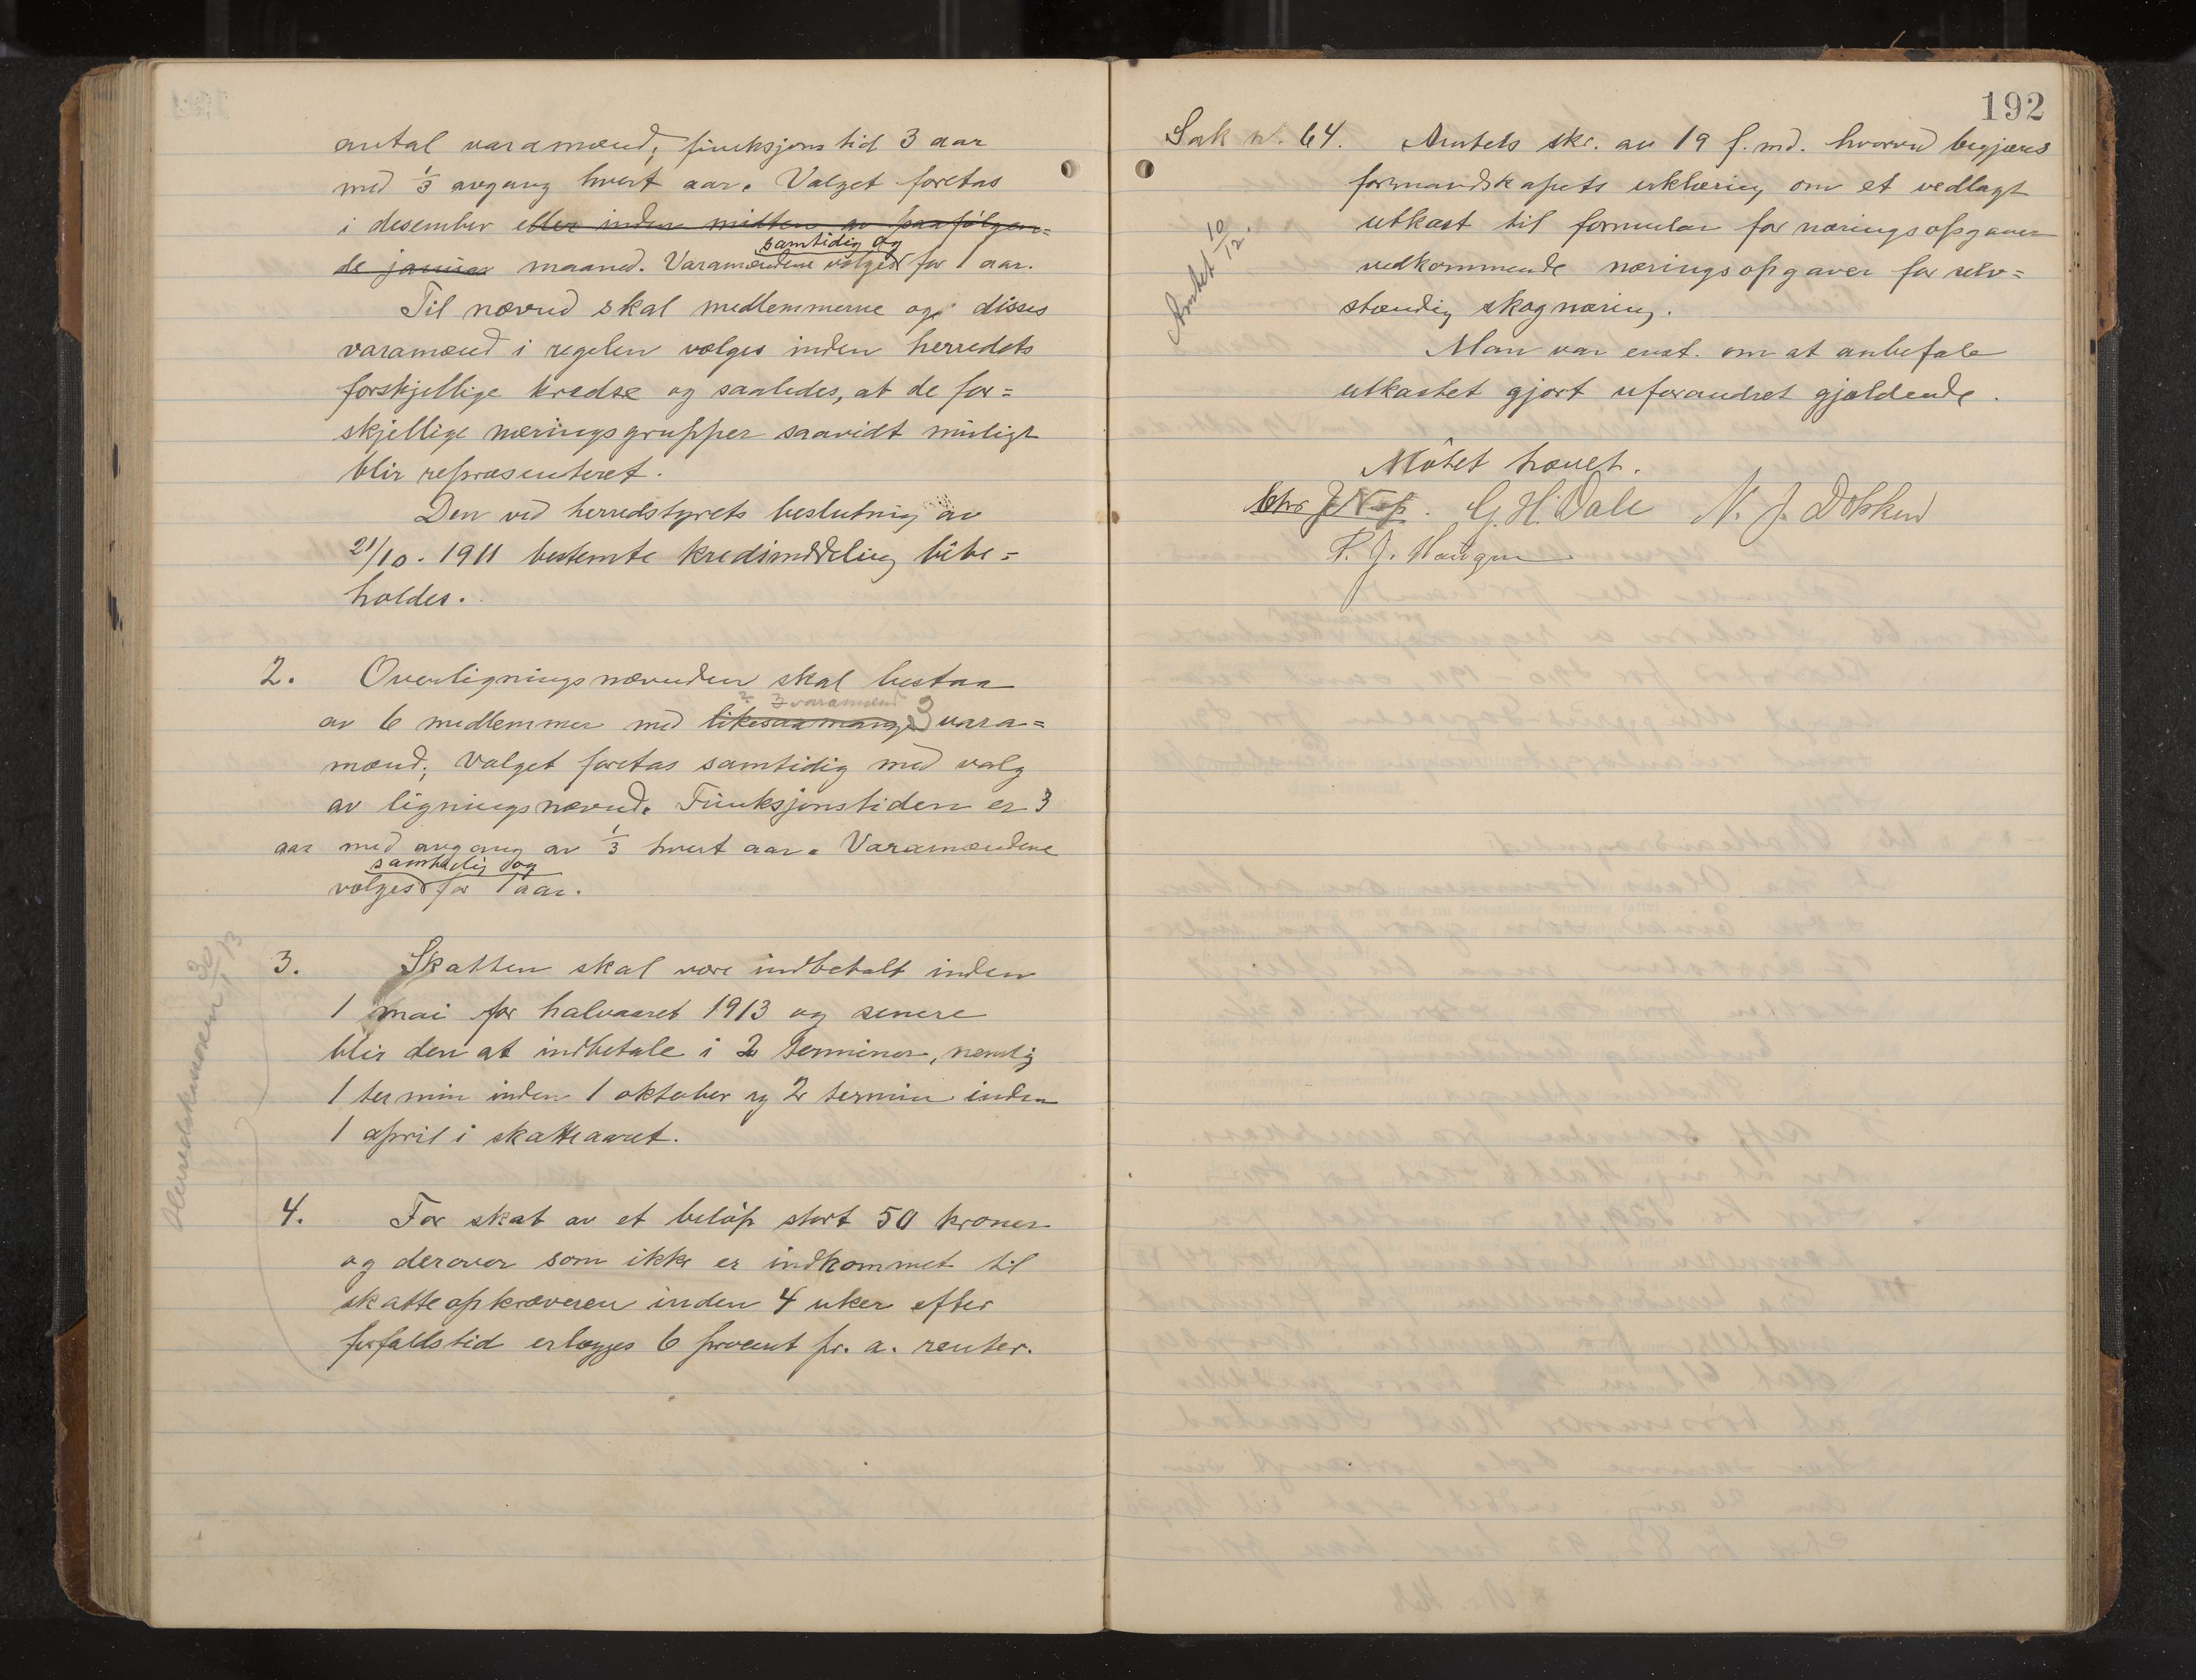 antal varamænd, funksjonstid 3 aar
med 1/3 avgang hvert aar. Valget foretas
i desember eller inden midten av paafølgen=
de januar maaned. Varamændene vælges samtidig og for 1 aar.
Til nævnd skal medlemmerne og disses
varamænd i regelen vælges inden herredets
forskjellige kredse og saaledes, at de for=
skjellige næringsgrupper saavidt mulig
blir repræsenteret.
Den ved herredstyrets beslutning av
21/10. 1911 bestemte kredsinddeling bibe=
holdes.
2. Overligningsnævnden skal bestaa
3 varamænd
av 6 medlemmer med likesaamange 3 vara=
mænd; valget foretas samtidig med valg
av ligningsnævnd. Funksjonstiden er 3
aar med avgang av 1/3 hvert aar. Varamændene
vælges samtidig og for 1 aar.
3. Skatten skal være indbetalt inden
1 mai for halvaaret 1913 og senere
blir den at indbetale i 2 terminer, nemlig
1 termin inden 1 oktober og 2 termin inden
1 april i skatteaaret.
4. For skat av et beløp stort 50 kroner
og derover som ikke er indkommet til
skatteopkræveren inden 4 uker efter
forfaldstid erlægges 6 procent pr. a. renter.
Herredskassereren 30/1 13
192
Sak nr. 64. Amtets skr. av 19 f. md. hvorved begjæres
formandskapets erklæring om et vedlagt
utkast til formular for næringsopgaver
vedkommende næringsopgaver for selv=
stændig skognæring.
Amtet 10/12.
Man var enst. om at anbefale
utkastet gjort uforandret gjældende.
Møtet hævet.
Chr J Nap. G. H. Dale N. J. Dokken
P. J. Haugen